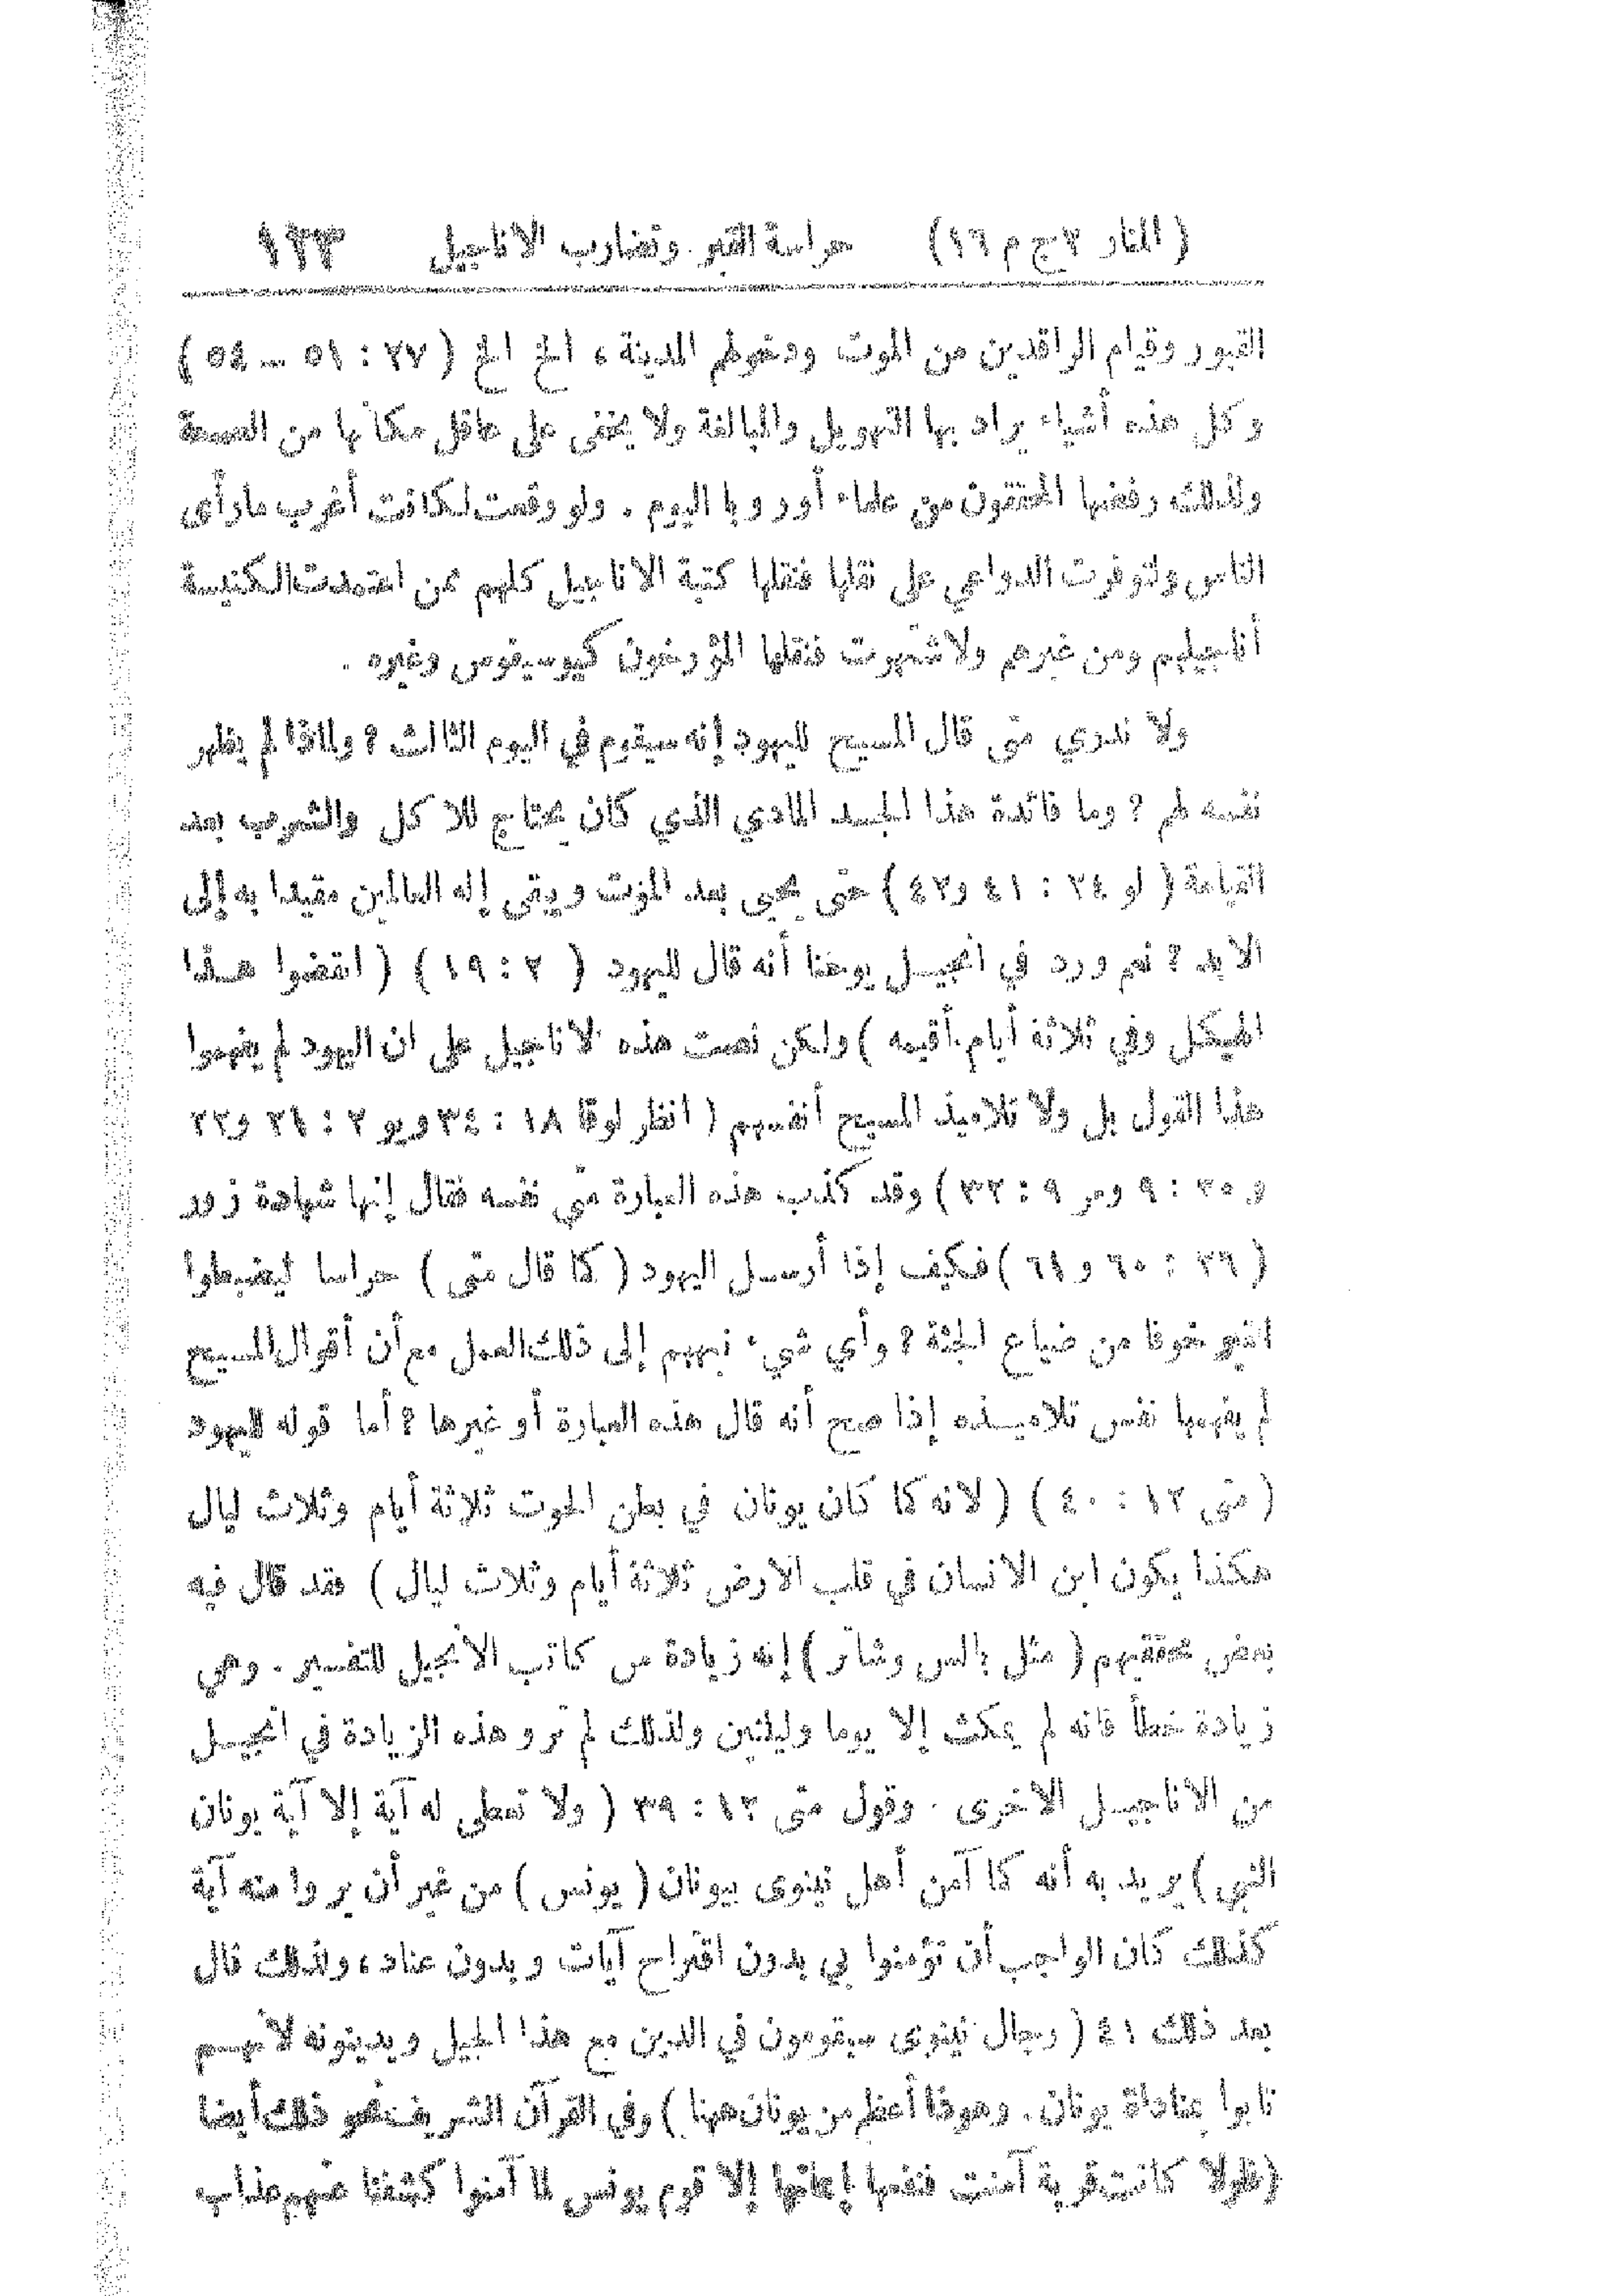 ( المنار ٢ ج م ١٦ ) حراسة القبر وتضارب الاناجيل ١٢٣
القبور وقيام الراقدين من الموت ودخولهم المدينة ، الخ الخ ( ٢٧ : ٥١ ــ ٥٤ )
وكل هذه أشياء يراد بها التهويل والمبالغة ولا يخفى على عاقل مكانها من الصحة
ولذلك رفضها المحققون من علماء أوروبا اليوم . ولو وقعت لكانت أغرب مارأى
الناس ولتوفرت الدواعي على نقلها فنقلها كتبة الاناجيل كلهم ممن اعتمدت الكنيسة
أناجيلهم ومن غيرهم ولاشتهرت فنقلها المؤرخون كيوسيفوس وغيره .
ولا ندري متى قال المسيح لليهود إنه سيقوم في اليوم الثالث ؟ ولماذا لم يظهر
نفسه لهم ؟ وما فائدة هذا الجسد المادي الذي كان يحتاج للاكل والشرب بعد
القيامة ( لو ٢٤ : ٤١ و٤٢ ) حتى يحيى بعد الموت ويبقى إله العالمين مقيدا به إلى
الابد ؟ نعم ورد في انجيـل يوحنا أنه قال لليهود ( ٢ : ١٩ ) ( انقضوا هـذا
الهيكل وفي ثلاثة أيام أقيمه ) ولكن نصت هذه الاناجيل على ان اليهود لم يفهموا
هذا القول بل ولا تلاميذ المسيح أنفسهم ( انظر لوقا ١٨ : ٣٤ ويو ٢ : ٢١ و٢٢
و ٢٠ : ٩ ومر ٩ : ٣٢ ) وقد كذب هذه العبارة متى نفسه فقال إنها شهادة زور
( ٢٦ : ٦٠ و ٦١ ) فكيف إذا أرسـل اليهود ( كما قال متى ) حراسا ليضبطوا
القبر خوفا من ضياع الجثة ؟ وأي شيء نبههم إلى ذلك العمل مع أن أقوال المسيح
لم يفهمها نفس تلاميـذه إذا صح أنه قال هذه العبارة أو غيرها ؟ أما قوله لليهود
( متى ١٢ : ٤٠ ) ( لانه كما كان يونان في بطن الحوت ثلاثة أيام وثلاث ليال
هكذا يكون ابن الانسان في قلب الارض ثلاثة أيام وثلاث ليال ) فقد قال فيه
بعض محققيهم ( مثل بالس وشاتر ) إنه زيادة من كاتب الانجيل للتفسير . وهي
زيادة خطأ فانه لم يمكث إلا يوما وليلتين ولذلك لم ترو هذه الزيادة في انجيـل
من الاناجيـل الاخرى . وقول متى ١٢ : ٣٩ ( ولا تعطى له آية إلا آية يونان
النبي ) يريد به أنه كما آمن أهل نينوى بيونان ( يونس ) من غير أن يروا منه آية
كذلك كان الواجب أن تؤمنوا بي بدون اقتراح آيات وبدون عناد ، ولذلك قال
بعد ذلك ٤١ ( رجال نينوى سيقومون في الدين مع هذا الجيل ويدينونه لانهـم
تابوا بمناداة يونان . وهوذا أعظم من يونان ههنا ) وفي القرآن الشريف نحو ذلك أيضا
( فلولا كانت قرية آمنت فنفعها إيمانها إلا قوم يونس لما آمنوا كشفنا عنهم عذاب